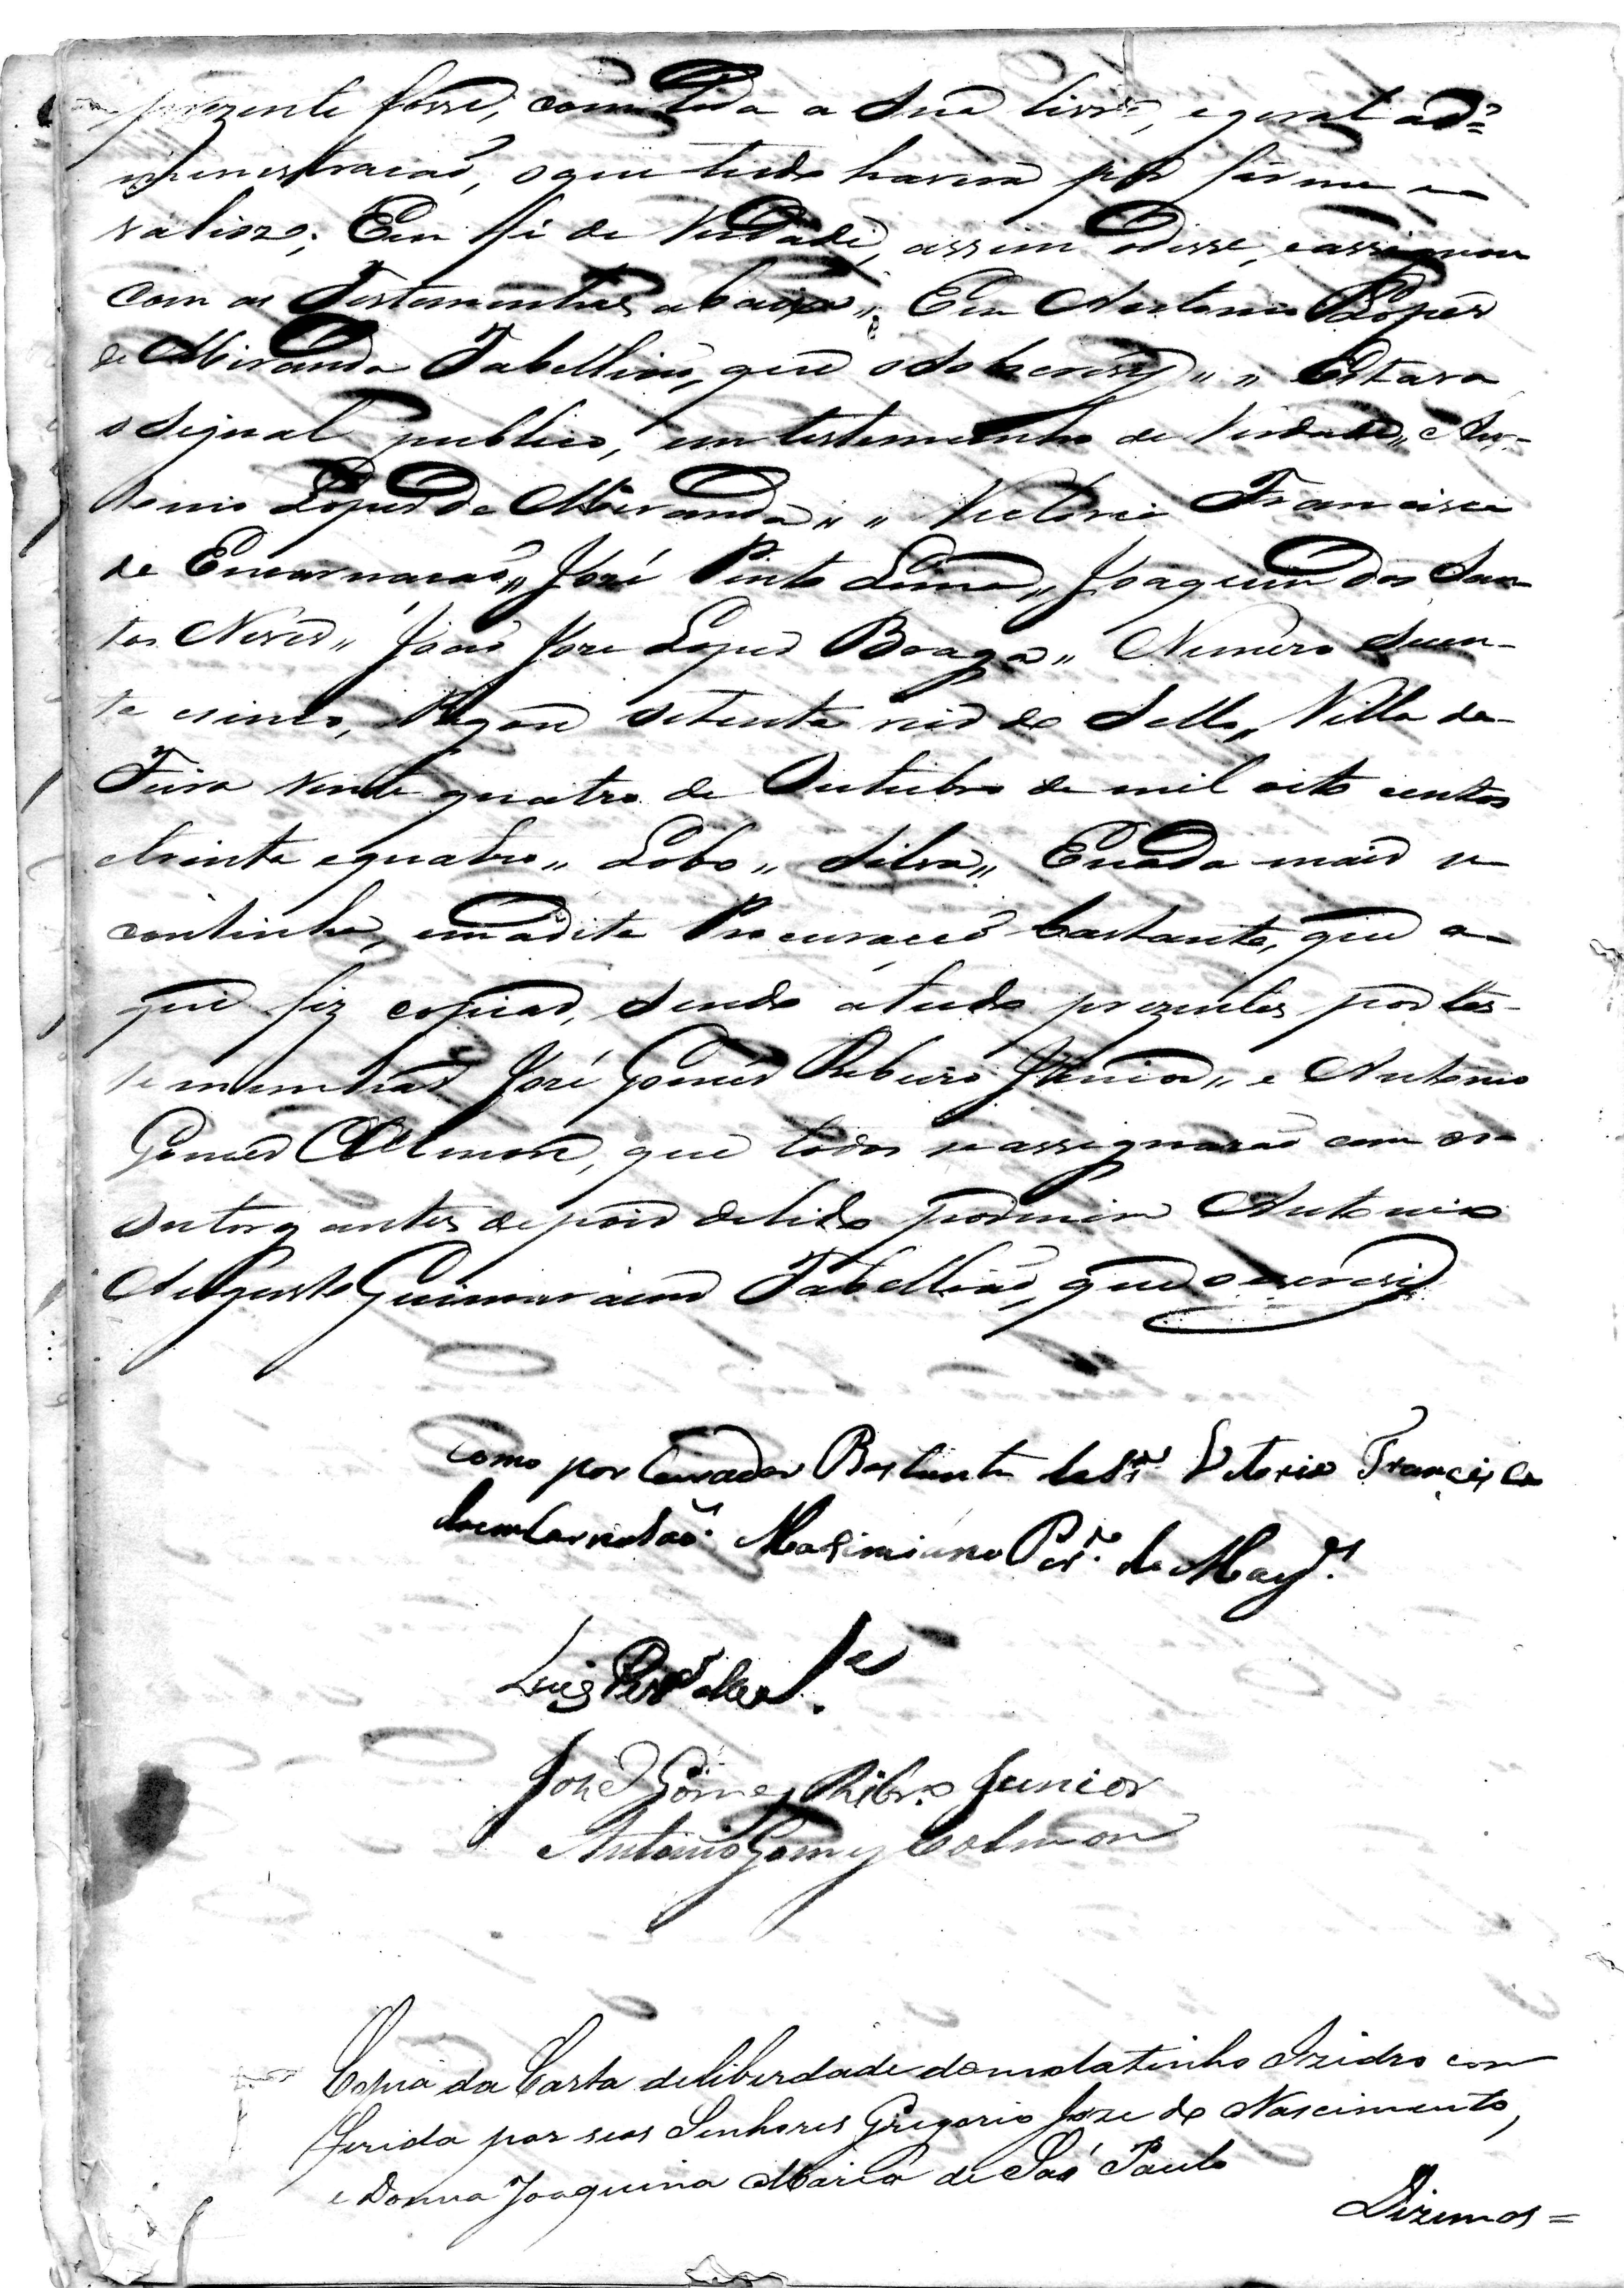 prezente fosse, com toda a Sua livre, e geral ad=
menistracaõ, o que tudo haverá por firme e
valiozo; Em fé de Verdade, assim o disse, e assignou
com as Testamunhas abaixo,, Eu Antonio Lopes
de Miranda Tabelliaõ, que o sobscrevy ,, ,, Estava
o Signal publico, em testemunho de Verdade,, An-
tonio Lopes de Miranda ,, ,, Victoria Francisca
da Encarnacaõ,, José Pinto Lima,, Joaquim dos San
tos Neves,, João Joze Lopes Braga,, Numero Secen-
ta e sinco, Pagou Setenta reis de Sello,, Villa da
Feira Vinte quatro de Outubro de mil oito centos
etrinta e quatro,, Lobo,, Silva,, E nada mais se
continha, em a dita Procuraçaõ bastante, que a
qui fiz copiar, Sendo a tudo prezentes por tes-
temunhas José Gomes Ribeiro Junior,, e Antonio
Gomes Colmon, que todos se assignaraõ com os
Outorgantes depois delido por mim Antonio
Augusto Guimaraens Tabelliaõ, que o escrevy
Como por Curador Bastante da Sr.ª Vitoria Francisca
da emCarnasaõ Maximiano Per.ª de Mag.es
Luis
José Gomes Ribr.o Junior
Antonio Gomes Colmon
Copia da Carta deliberdade do molatinho Izidro con
ferida por seos Senhores Gregorio Joze do Nascimento,
e Donna Joaquina Maria de Saõ Paulo
Dizemos=